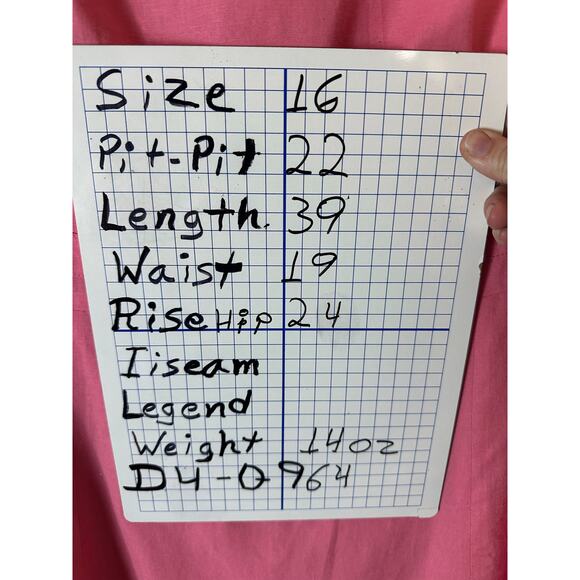 Size 16
Pit-Pit 22
Length. 39
Waist 19
Rise Hip 24
Iiseam
Legend
Weight 14oz
D4-0964